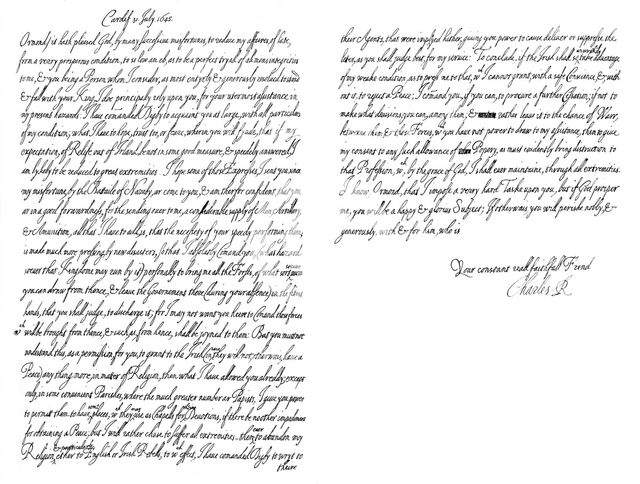 Cardif 31 July 1645.
Ormond; it hath pleased God, by many successive misfortunes, to reduce my affaires of late,
from a verry prosperous condition, to so low an eb, as to be a perfect tryall of all mens integrities
to me, & you being a Person whom I consider, as most entyrly & generously resolved to stand
& fall with your King, I doe principally rely upon you, for your utermost assistance in
my present hazards: I have comanded Digby to acquaint you at large, with all particulars
of my condition; what I have to hope, trust too, or feare; wherin you will fynde, that if my
expectation, of Relife out of Irland, be not in some good measure, & speedely answered, I
am lykly to be reduced to great extremities. I hope some of those Expresses, I sent you since
my misfortune, by the Battaile of Nazeby, ar come to you, & am therfor confident, that you
ar in a good forwardness, for the sending over to me, a considerable supply of Men, Artillery,
& Amunition; all that I have to add is, that the necessety of your speedy performing them
is made much more pressing by new disasters; so that I absolutly Comand you, (what hazard
soever that Kingdome may run by it) personally to bring me all the Forses, of what sort soever
you can draw from thence, & leave the Governement there (during your absence) in the fittest
hands, that you shall judge, to discharge it; for I may not want you heere to Comand those forces
wch will be brought from thence, and such as, from hence, shall be joyned to them: But you must not
understand this, as a permission for you, to grant to the Irish (in case they will not otherwais have a
Peace) any thing more, in mater of Religion, then what I have allowed you alreddy; except
only, in some convenient Parishes, where the much greater number ar Papists, I give you power
to permitt them to have some places, wch they may use as Chapells for theire Devotions, if there be no other impediment
for obtaining a Peace; but I will rather chuse to suffer all extremities then ever to abandon my
Religion, & particularly ether to English or Irish Rebells, to wch effect, I have comanded Digby to wryt to
theire
their Agents, that were imployed hither, giving you power to cause deliver or suppresse the
letter, as you shall judge best, for my service: To conclude, if the Irish shall so unworthily take advantage
of my weake condition, as to press me to that, wch I cannot grant, with a safe Conscience, & with
out it, to reject a Peace; I comand you, if you can, to procure a further Cessation; if not, to
make what devisions you can, among them, & rather leave it to the chance of Warr,
betweene them & those Forces, wch you have not power to draw to my assistance, then to give
my consent to any such allowance of Popery, as must evidently bring distruction to
that Profession, wch, by the grace of God, I shall ever maintaine, through all extremities.
I know, Ormond, that I impose a verry hard Taske upon you, but if God prosper
me, you will be a happy & glorius Subject; If otherwais you will perishe nobly, &
generously, with & for him, who is
Your constant reall faithfull Frend
Charles R